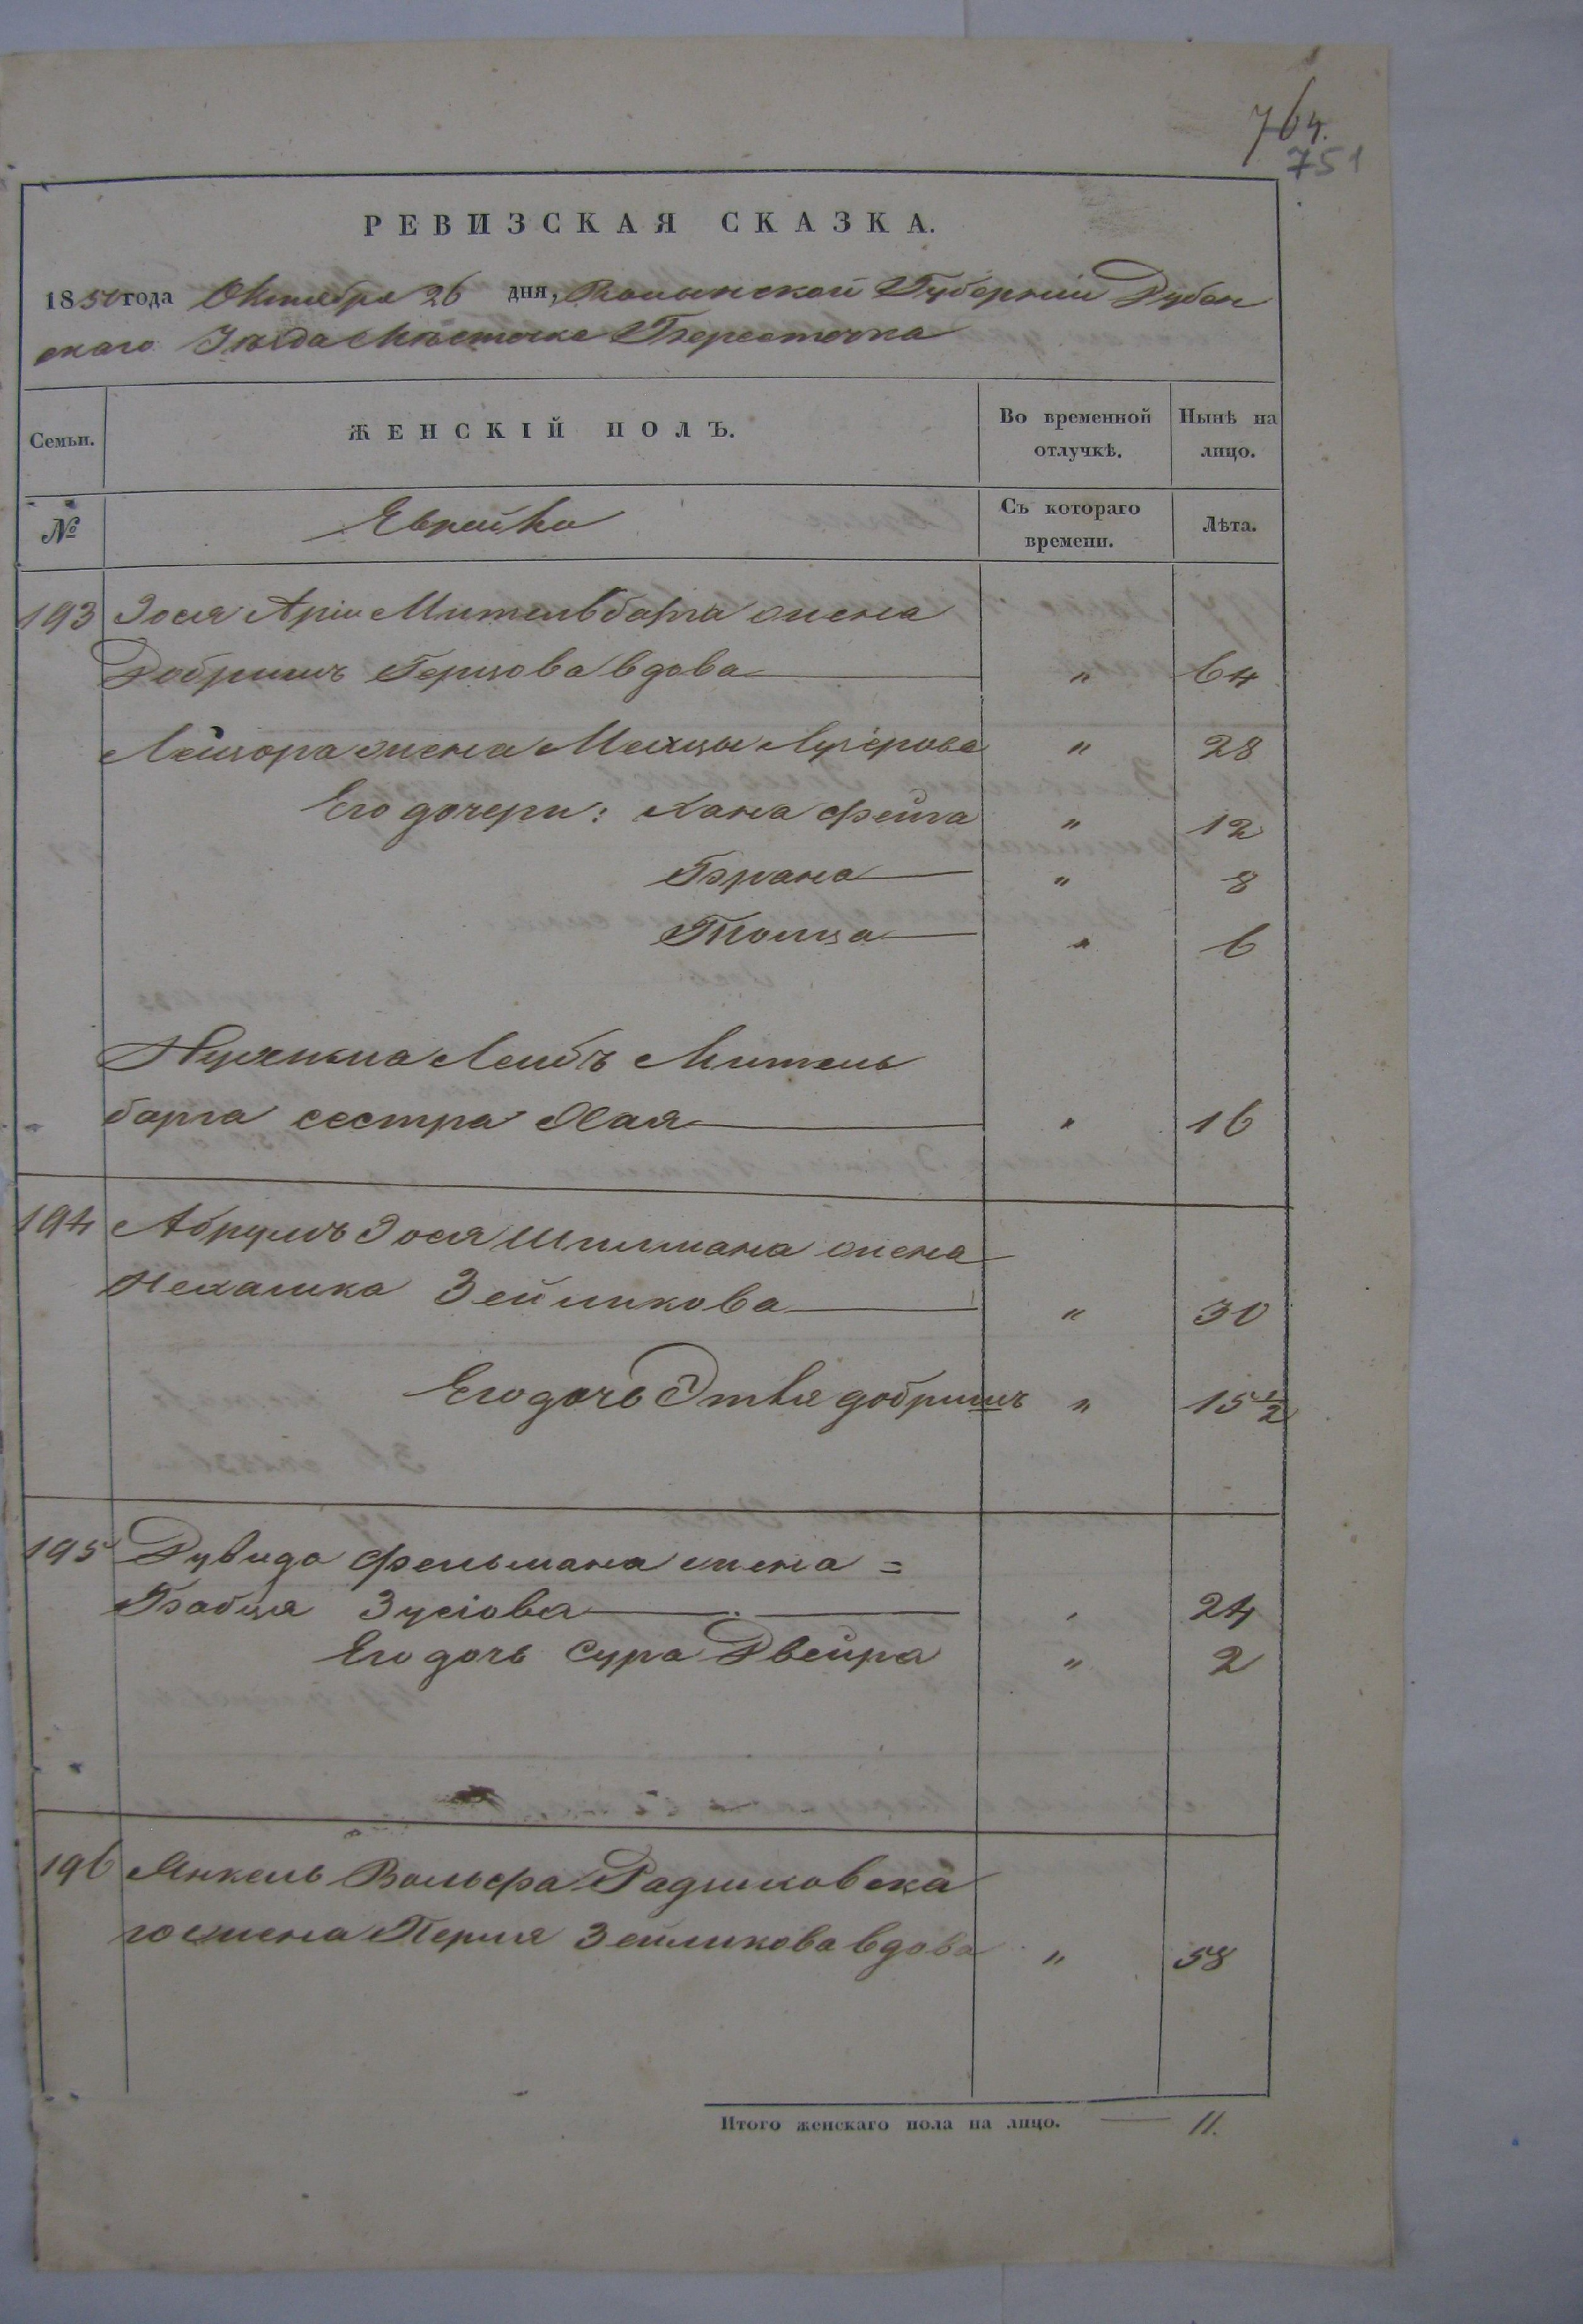 764.
751
РЕВИЗСКАЯ СКАЗКА.
1850 года Октября 26 дня, Волынской Губерніи Дубен
скаго Уѣзда Мѣстечка Берестечка
Семьи. ЖЕНСКІЙ ПОЛЪ. Во временной отлучкѣ. Нынѣ на лицо.
№ Еврейки Съ котораго времени. Лѣта.
193 Іося Арія Мительбарга жена
Добришъ Герцова вдова " 64
Лейзора жена Малцы Лузерова " 28
Его дочери: Хана Фейга " 12
Брана " 8
Тойба " 6
Лейбъ Митель
барга сестра Хая " 16
194 Абрумъ Іося Шпилмана жена
Нехамка Зейликова " 30
Его дочь Этля добришъ " 15 1/2
195 Дувида Фельмана жена =
Бабця Зусіова " 24
Его дочь Сура Двейра " 2
196 Янкель Вольфа Радзиховска
го жена Перля Зейликова вдова " 58
Итого женскаго пола на лицо. — 11.